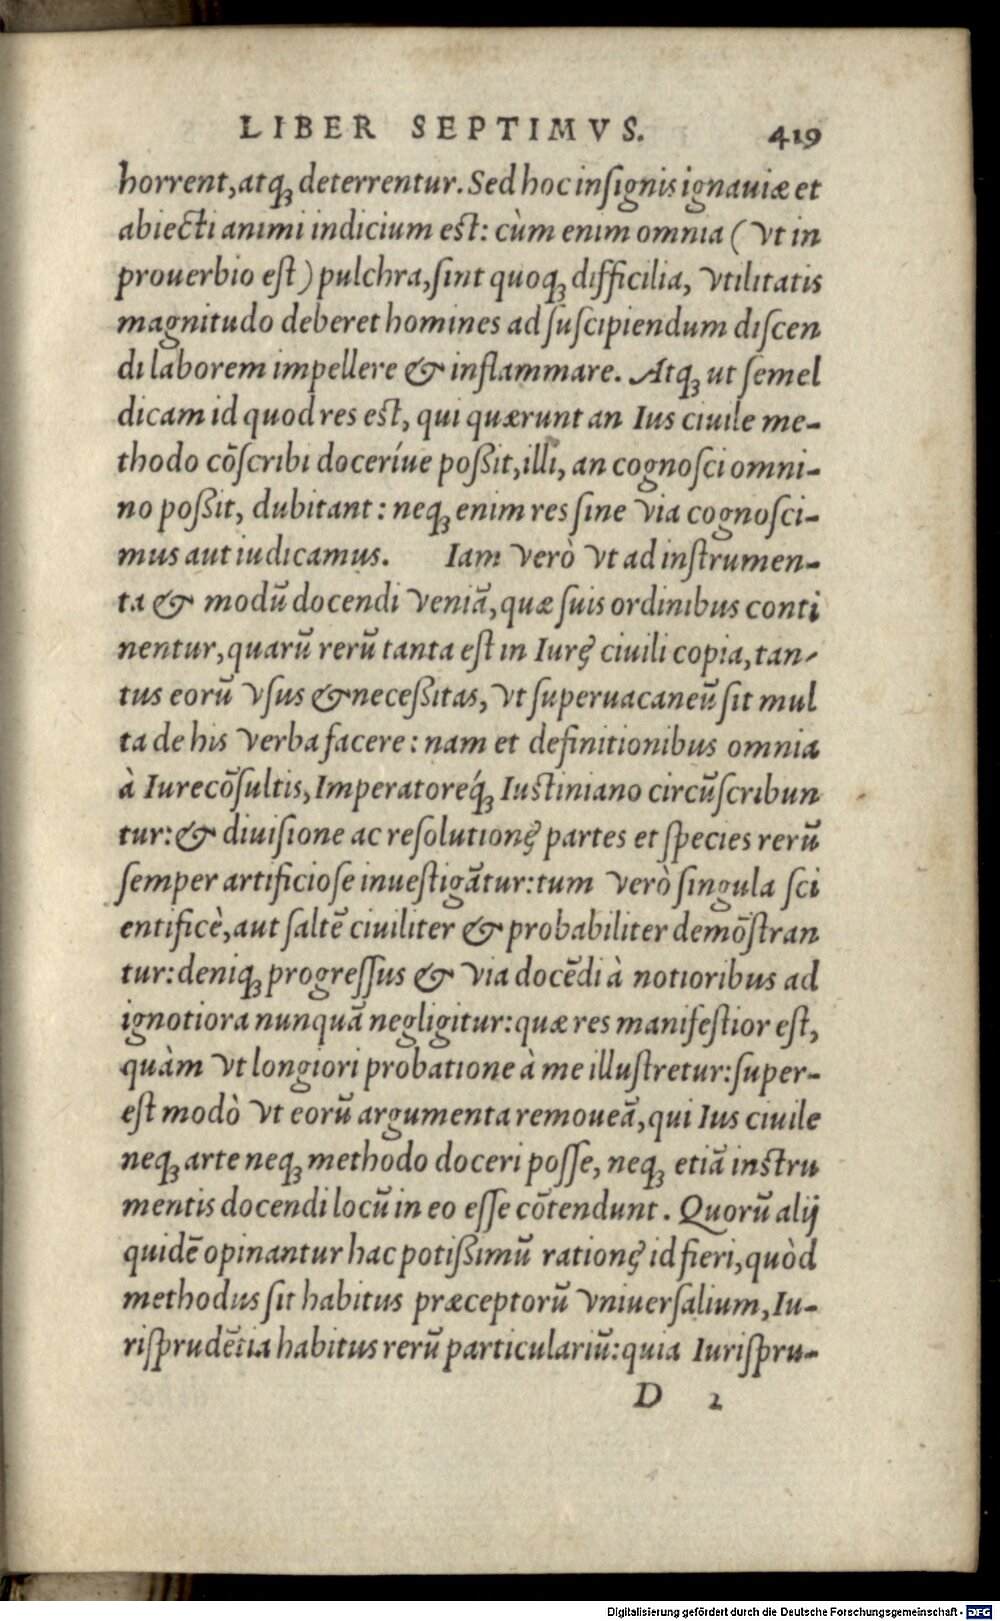 LIBER SEPTIMVS. 419
horrent, atq; deterrentur. Sed hoc inſignis ignauiæ et
abiecti animi indicium eſt: cùm enim omnia (vt in
prouerbio eſt) pulchra, ſint quoq; difficilia, vtilitatis
magnitudo deberet homines ad ſuſcipiendum diſcen
di laborem impellere & inflammare. Atq; ut ſemel
dicam id quod res eſt, qui quærunt an Ius ciuile me-
thodo cōſcribi doceríue poßit, illi, an cognoſci omni-
no poßit, dubitant: neq; enim res ſine via cognoſci-
mus aut iudicamus. Iam verò vt ad inſtrumen-
ta & modū docendi veniā, quæ ſuis ordinibus conti
nentur, quarū rerū tanta eſt in Iurę ciuili copia, tan-
tus eorū vſus & neceßitas, vt ſuperuacaneū ſit mul
ta de his verba facere: nam et definitionibus omnia
à Iurecōſultis, Imperatoreq́; Iuſtiniano circūſcribun
tur: & diuiſione ac reſolutionę partes et ſpecies rerū
ſemper artificioſe inueſtigātur: tum verò ſingula ſci
entificè, aut ſaltē ciuiliter & probabiliter demōſtran
tur: deniq; progreſſus & via docēdi à notioribus ad
ignotiora nunquā negligitur: quæ res manifeſtior eſt,
quàm vt longiori probatione à me illuſtretur: ſuper-
eſt modò vt eorū argumenta remoueā, qui Ius ciuile
neq; arte neq; methodo doceri poſſe, neq; etiā inſtru
mentis docendi locū in eo eſſe cōtendunt. Quorū alij
quidē opinantur hac potißimū rationę id fieri, quòd
methodus ſit habitus præceptorū vniuerſalium, Iu-
riſprudētia habitus rerū particulariū: quia Iuriſpru-
D 2
Digitalisierung gefördert durch die Deutsche Forschungsgemeinschaft - DFG